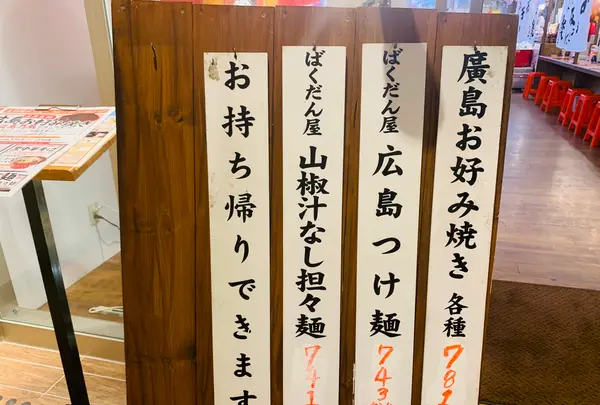 廣島お好み焼き 各種 781
ばくだん屋 広島つけ麺 743
ばくだん屋 山椒汁なし担々麺 741
お持ち帰りできます